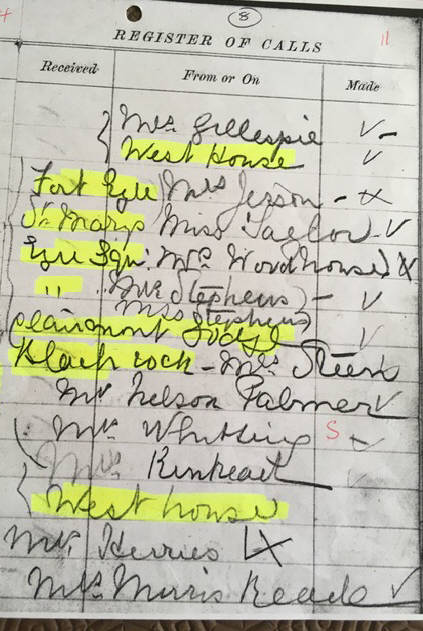 8
11
REGISTER OF CALLS
Received From or On Made
Mrs. Gillespie
West House
Fort Eyre Mrs Jesson - x
St. Marys Miss Taylor - v
Eyre Sqr. Mrs Woodhouse x
" Mrs Stephens) -
Miss Stephens)
Clairmont Lodge
Black rock - Mrs. Steen
Mr Nelson Palmer
Mrs. Whitting S
Mrs Kinkead
West house
Mrs. Herries x
Mrs Morris Reade